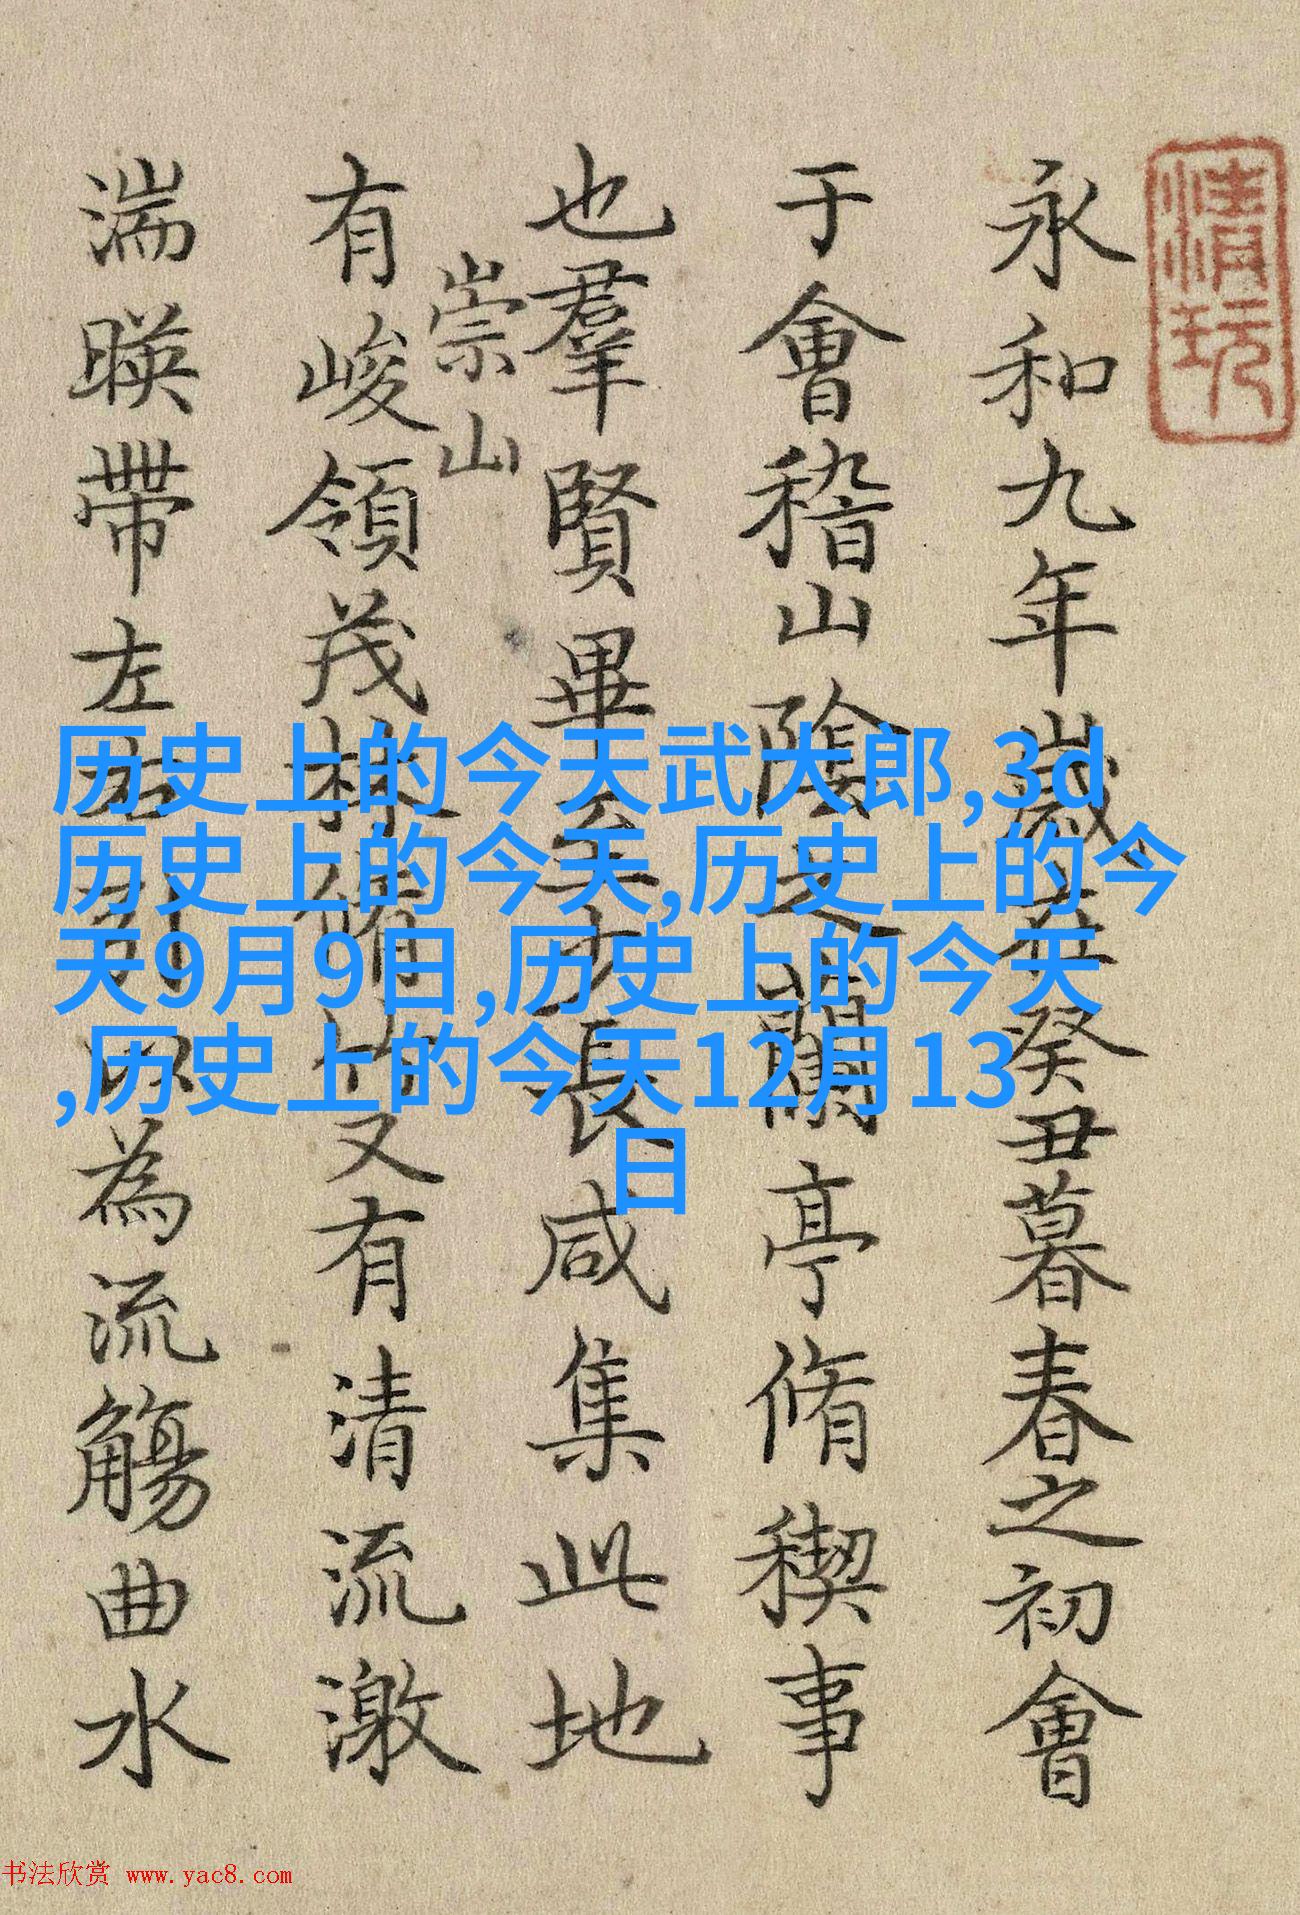 清玩
永和九年歲在癸丑暮春之初會
于會稽山陰之蘭亭脩稧事
也羣賢畢至少長咸集此地
崇山
有峻領茂林脩竹又有清流激
湍暎帶左右引以為流觴曲水
历史上的今天武大郎,3d
历史上的今天,历史上的今
天9月9日,历史上的今天
,历史上的今天12月13
日
书法欣赏 www.yac8.com